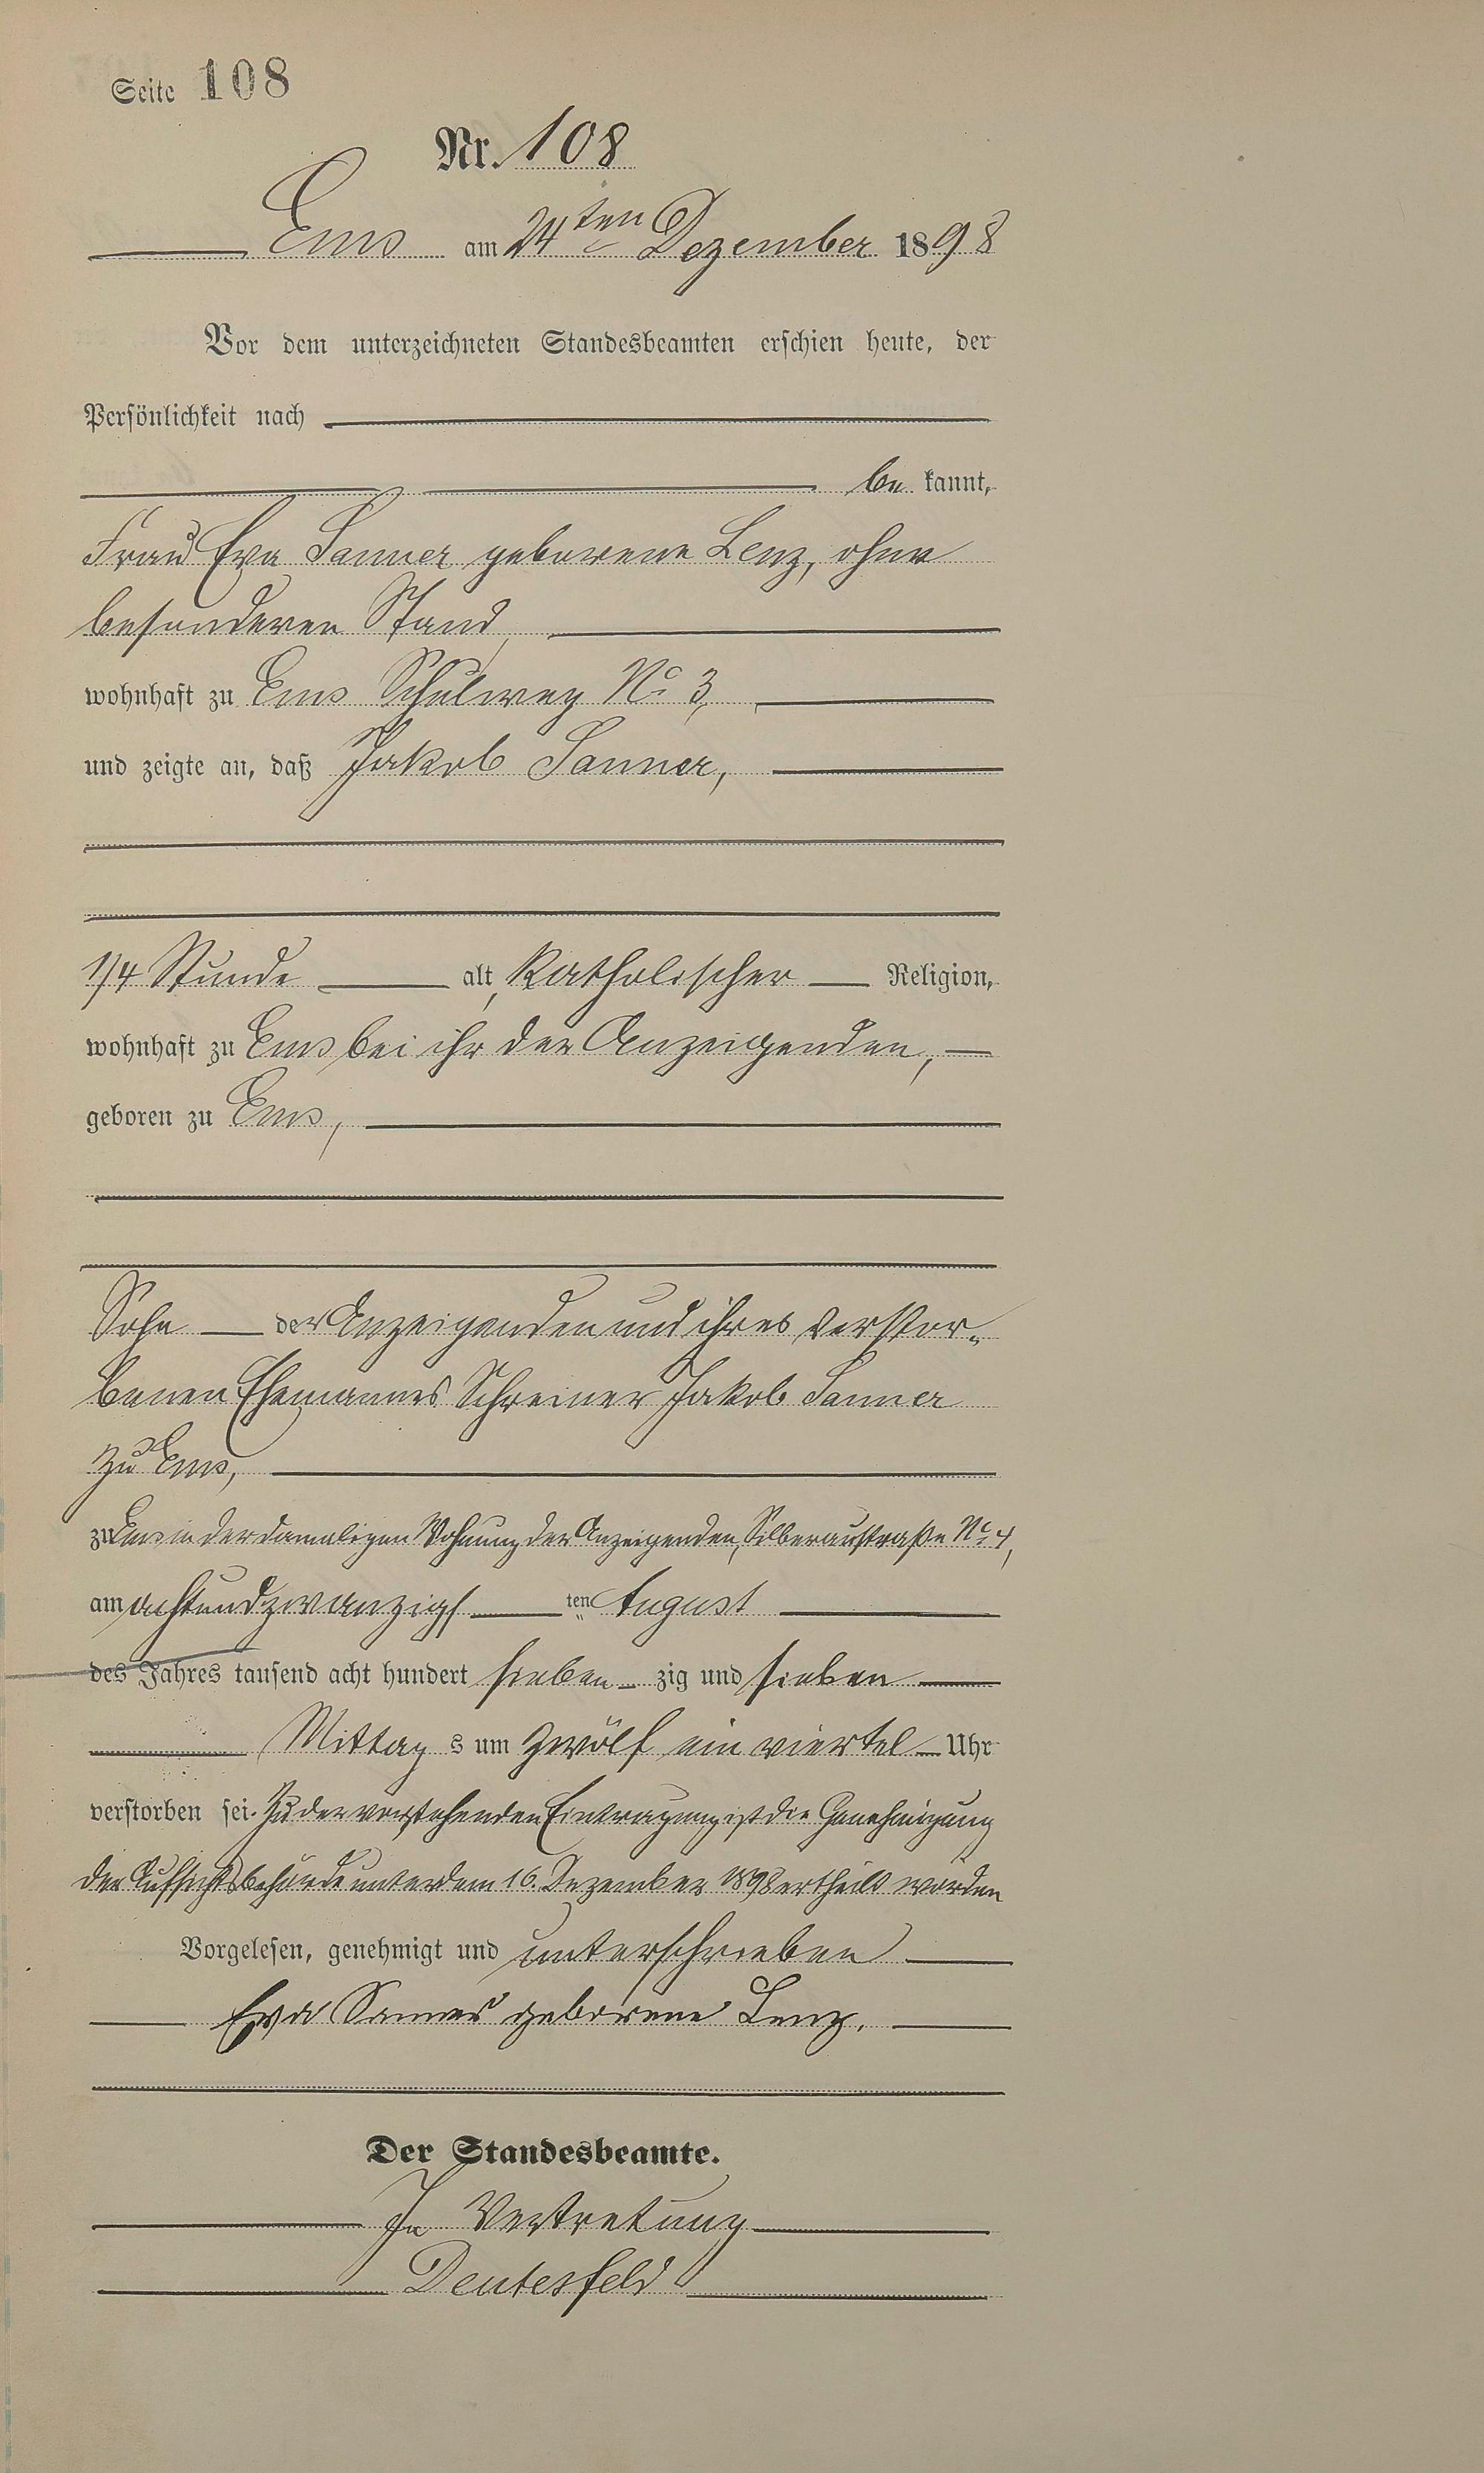 Seite 108
Nr. 108
Ems am 24ten Dezember 1898
Vor dem unterzeichneten Standesbeamten erschien heute, der
Persönlichkeit nach
be kannt,
Frau Eva Sanner geborene Lenz, ohne
besonderen Stand,
wohnhaft zu Ems Schulweg No 3,
und zeigte an, daß Jakob Sanner,
1/4 Stunde alt, katholischer Religion,
wohnhaft zu Ems bei ihr der Anzeigenden,
geboren zu Ems,
Sohn der Anzeigenden und ihres verstor-
benen Ehemannes Schreiner Jakob Sanner
zu Ems,
zu Ems in der damaligen Wohnung der Anzeigenden, Silberaustraße No 4,
am achtundzwanzigs ten August
des Jahres tausend acht hundert sieben zig und sieben
Mittag s um zwölf ein viertel Uhr
verstorben sei. Zu der vorstehenden Eintragung ist die Genehmigung
der Aufsichtsbehörde unter dem 16. Dezember 1898 ertheilt worden
Vorgelesen, genehmigt und unterschrieben
Eva Sanner geborene Lenz.
Der Standesbeamte.
In Vertretung
Deutesfeld